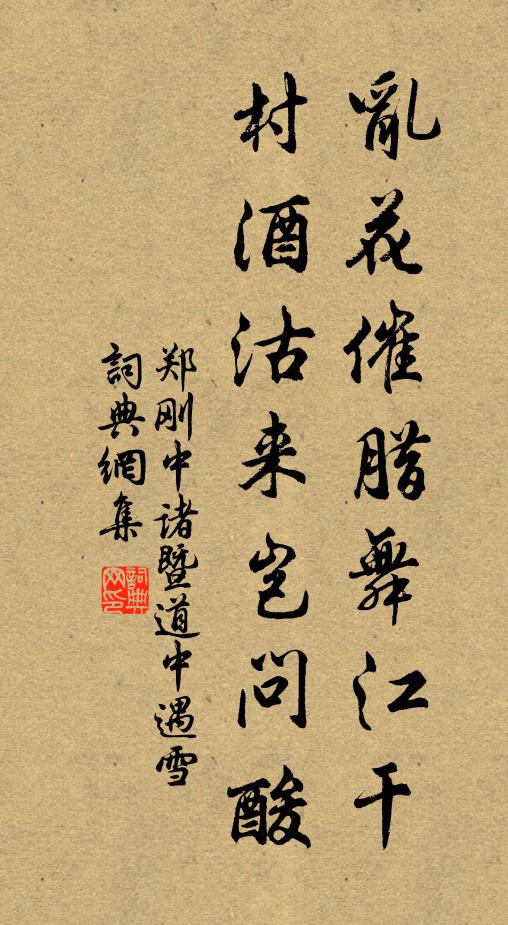 亂花催腊舞江干
村酒沽来岂問酸
郑刚中諸暨道中遇雪
詞典網集
詞典网印